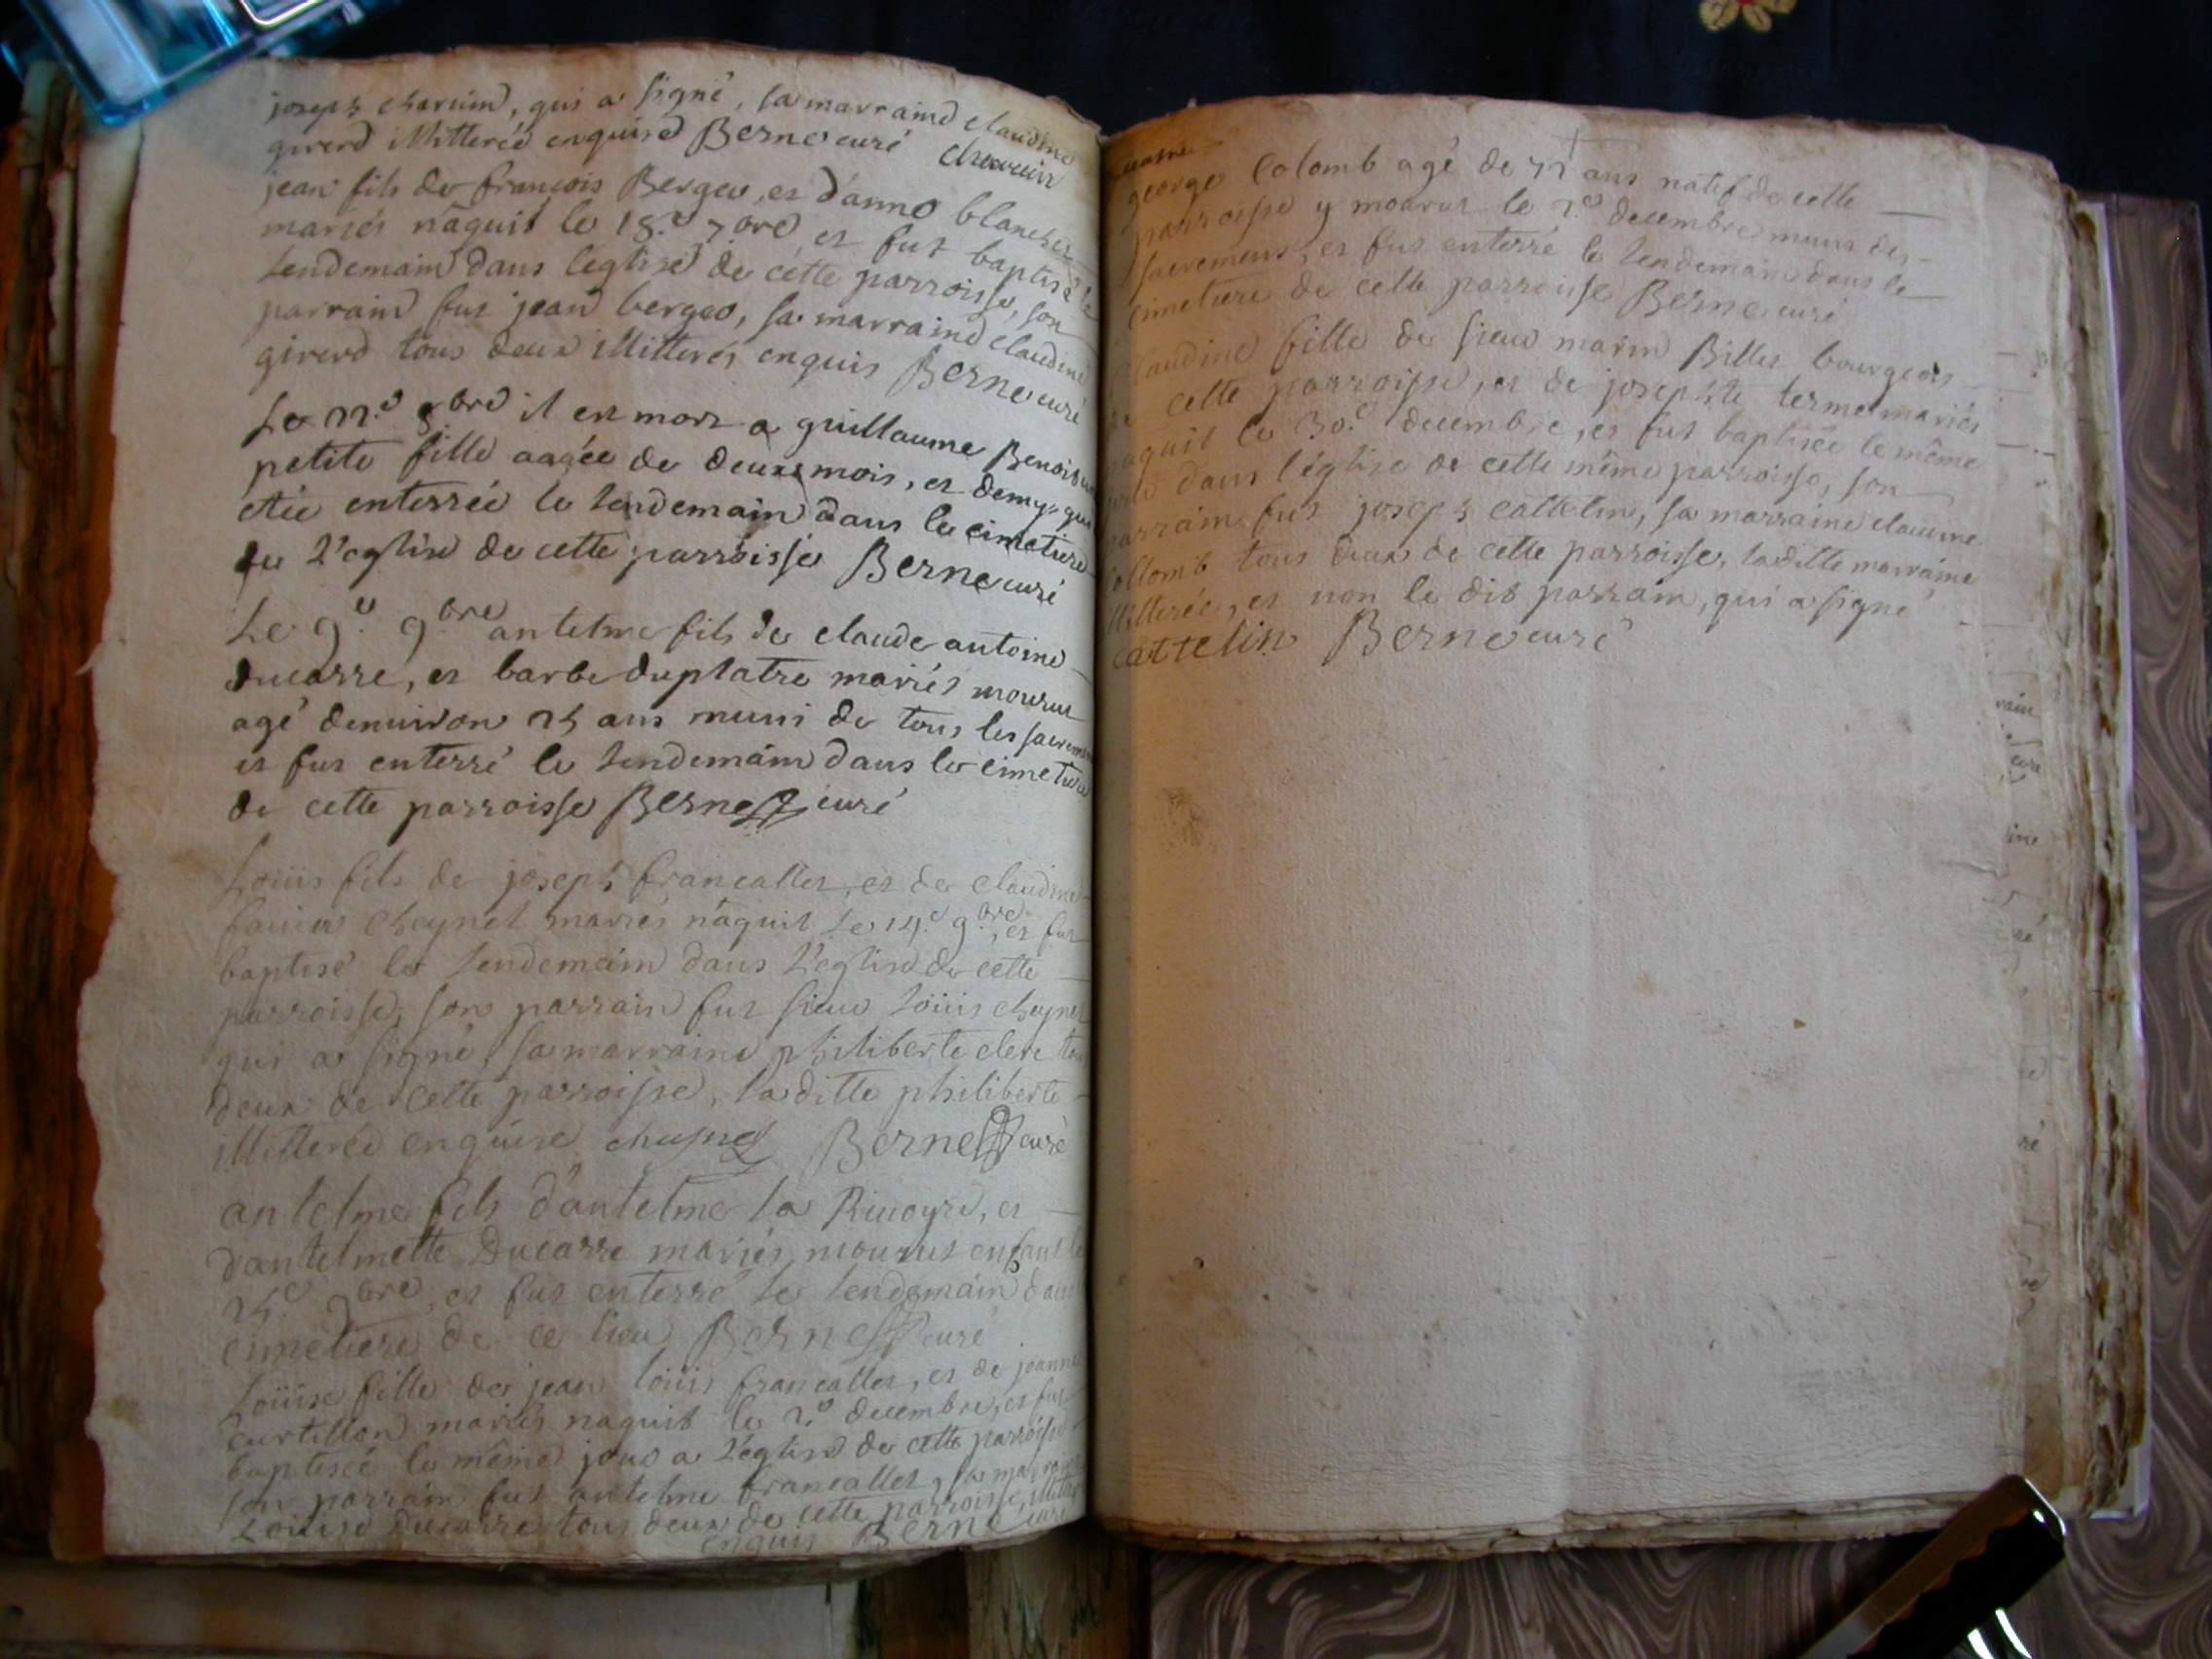 joseph charuin, qui a signé, sa marraine claudine
girerd illitterée enquise Berne curé charuin
jean fils de françois Berger, et d'anne blanchet
mariés náquit le 18.e 7bre et fut baptisé le
lendemain dans l'eglise de cette parroisse, son
parrain fut jean berger, sa marraine claudine
girerd tous deux illitterés enquis Berne curé
Le 8bre il est mort a guillaume Benoit une
petite fille aagée de deux mois, et demy, qui
étée enterrée le lendemain dans le cimetiere
de l'eglise de cette parroisse Berne curé
Le 9.e 9.bre antelme fils de claude antoine
ducarre, et barbe duplatre mariés mourut
agé denuiron 25 ans muni de tous les sacremens
et fut enterré le lendemain dans le cimetiere
de cette parroisse Berne curé
Loüis fils de joseph francallet, et de claudine
cheynet mariés náquit le 14.e 9.bre, et fut
baptisé le lendemain dans l'eglise de cette
parroisse, son parrain fut sieur loüis cheynet
qui a signé, sa marraine philiberte clerc tous
deux de cette parroisse, laditte philiberte
illitterée enquise cheynet Berne curé
antelme fils d'antelme la Riuoyre, et
d'antelmette Ducarre mariés mourut enfant le
25.e 9bre, et fut enterré le lendemain dans
cimetiere de ce lieu Berne curé
Loüise fille de jean loüis francallet, et de jeanne
curtillon mariés naquit le 2.e decembre, et fut
baptisée le même jour a l'eglise de cette parroisse
son parrain fut antelme francallet, sa marraine
Loüise Ducarre tous deux de cette parroisse, illiterés
enquis Berne curé
george Colomb agé de 72 ans natif de cette
parroisse y mourut le 2.e decembre muni des
sacremens, et fut enterré le lendemain dans le
cimetiere de cette parroisse Berne curé
Claudine fille de sieur marin Billiet bourgeois
de cette parroisse, et de josephte terme mariés
naquit le 30.e decembre, et fut baptisée le même
jour dans l'église de cette même parroisse, son
parrain fut joseph cattelin, sa marraine claudine
collomb tous deux de cette parroisse, laditte marraine
illiterée, et non le dit parrain, qui a signé
cattelin Berne curé